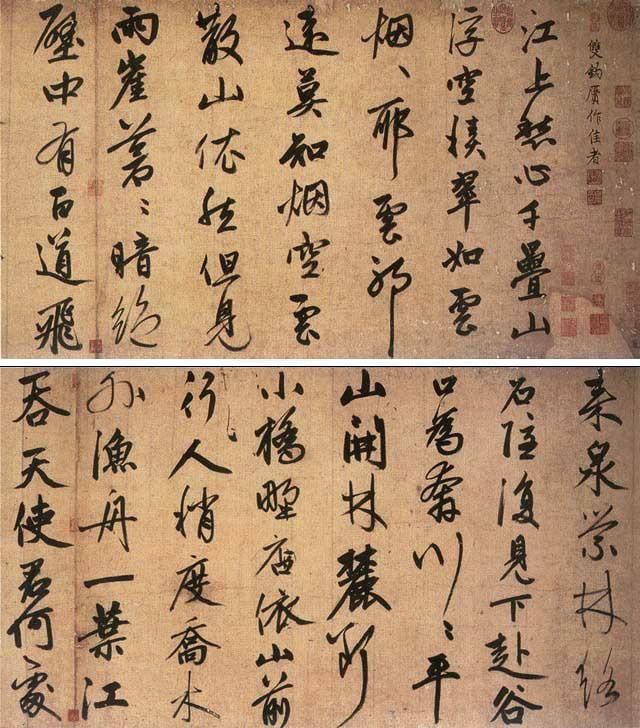 雙鈎贗作佳者
江上愁心千疊山
浮空積翠如雲
烟〻耶雲耶
遠莫知烟空雲
散山依然但見
兩崖蒼〻暗絕
壑中有百道飛
来泉縈林絡
石隱復見下赴谷
口為奔川〻平
山開林麓斷
小橋野店依山前
行人稍度喬木
外漁舟一葉江
吞天使君何處